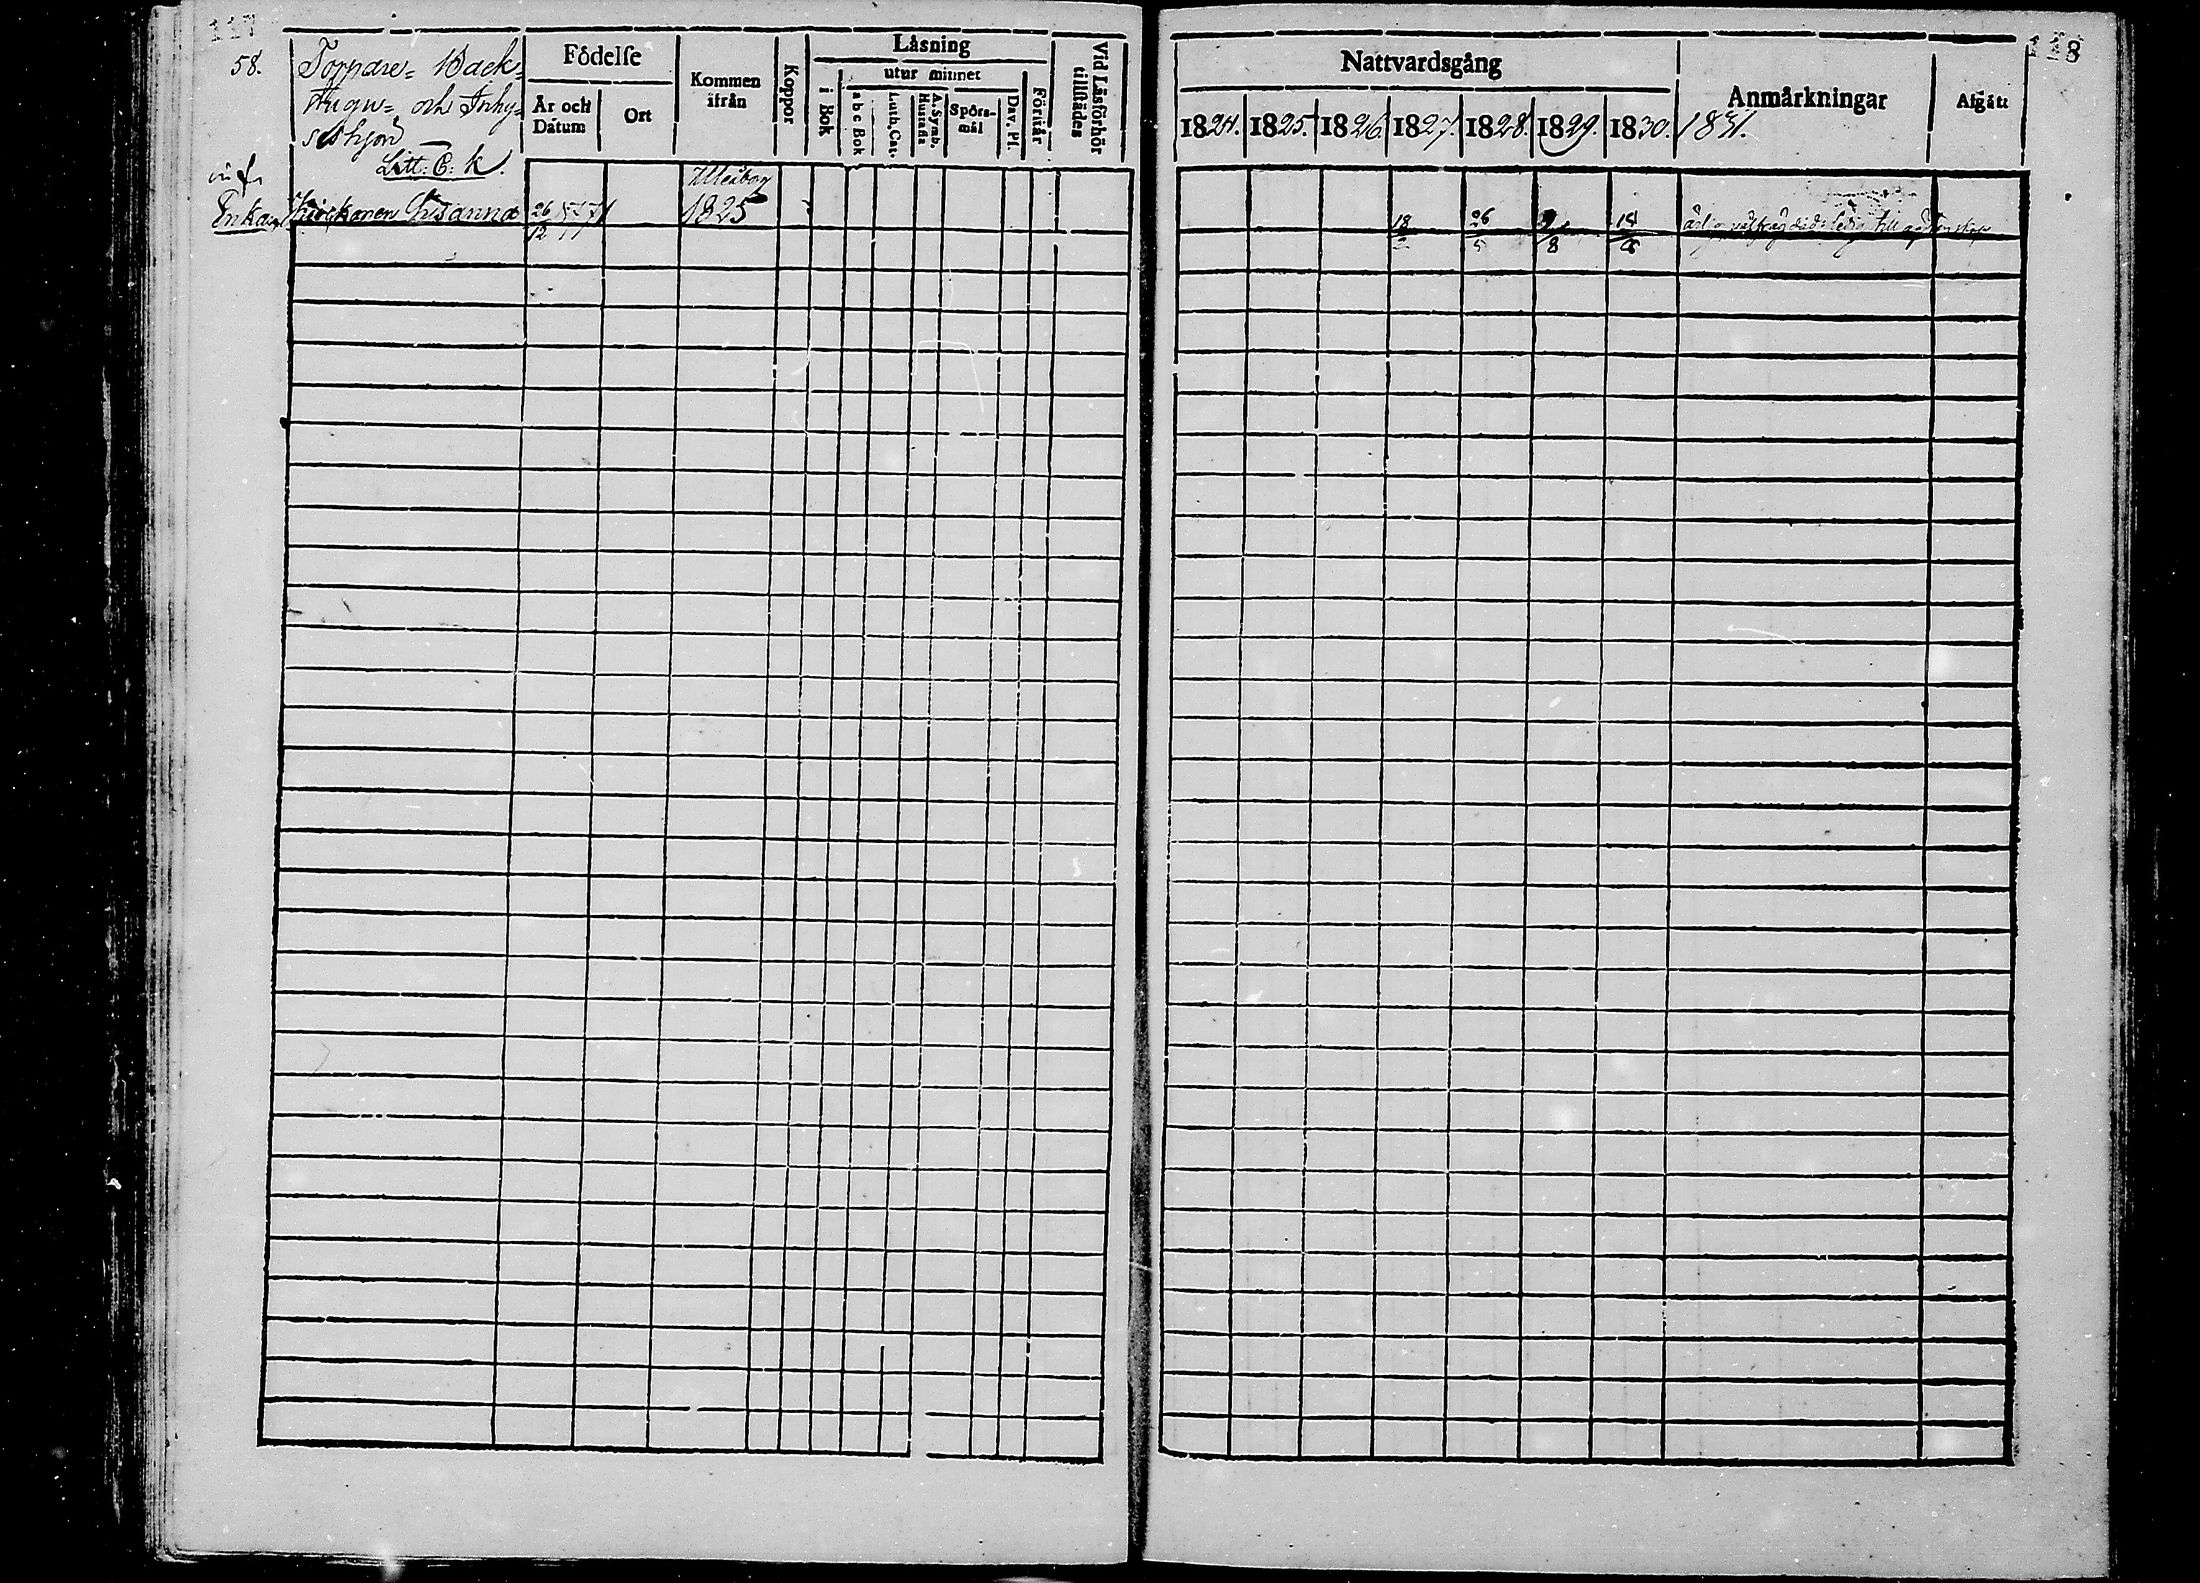 117
58.
Torpare- Back-
stugu- och Inhy-
seshjon
Litt: C: k.
Födelse
År och Datum
Ort
Kommen ifrån
Koppor
Läsning
i Bok
utur minnet
a b c Bok
Luth. Cat.
A. Symb. Hustafla
Spörs-mål
Dav. Ps.
Förstår
Vid Läsförhör tillstädes
Enkan Susanna
26/12 1771
Uleåborg
1825
118
Nattvardsgång
1824. 1825. 1826. 1827. 1828. 1829. 1830. 1831.
Anmärkningar
Afgått
18 26/5 9/8 18
ledig till